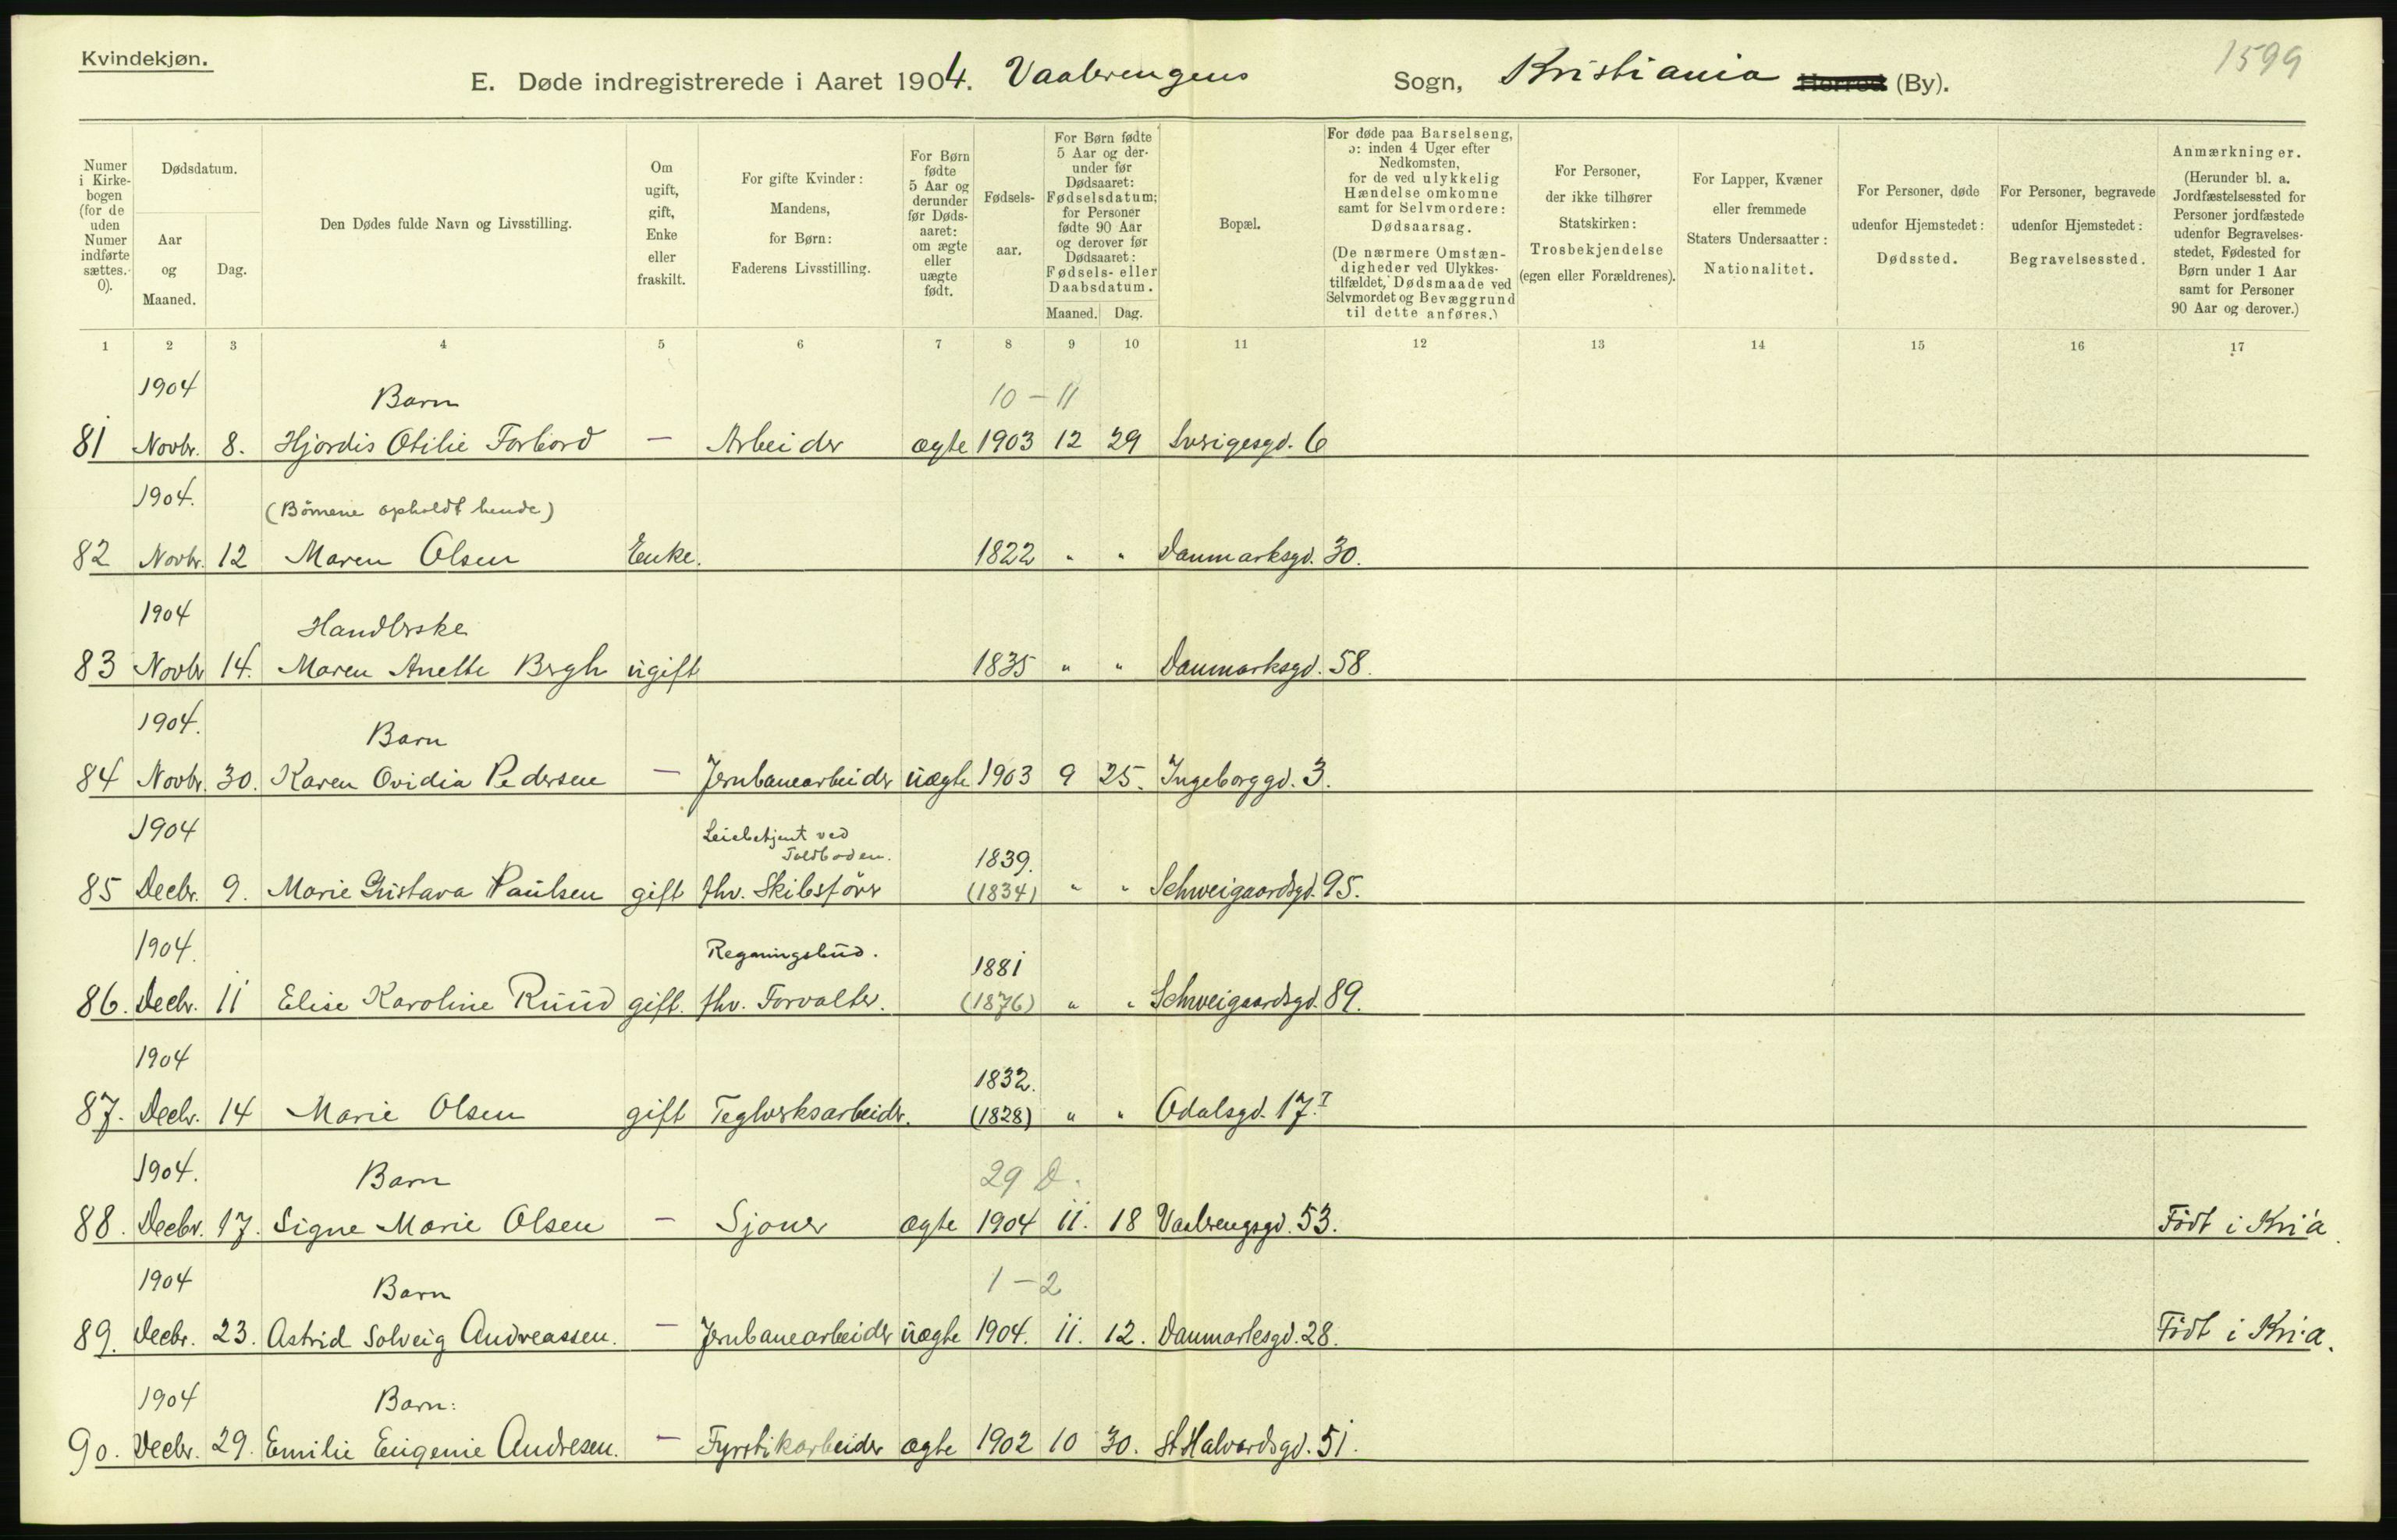 Kvindekjøn.
1599
E. Døde indregistrerede i Aaret 1904. Vaalerengens Sogn, Kristiania Herred (By).
Numer i Kirkebogen (for de uden Numer indførte sættes 0).
Dødsdatum.
Aar og Maaned.
Dag.
Den Dødes fulde Navn og Livsstilling.
Om ugift, gift, Enke eller fraskilt.
For gifte Kvinder: Mandens, for Børn: Faderens Livsstilling.
For Børn fødte 5 Aar og derunder før Dødsaaret: om ægte eller uægte født.
Fødselsaar.
For Børn fødte 5 Aar og derunder før Dødsaaret: Fødselsdatum; for Personer fødte 90 Aar og derover før Dødsaaret: Fødsels- eller Daabsdatum.
Maaned. Dag.
Bopæl.
For døde paa Barselseng, ɔ: inden 4 Uger efter Nedkomsten, for de ved ulykkelig Hændelse omkomne samt for Selvmordere: Dødsaarsag.
(De nærmere Omstændigheder ved Ulykkestilfældet, Dødsmaade ved Selvmordet og Bevæggrund til dette anføres.)
For Personer, der ikke tilhører Statskirken: Trosbekjendelse (egen eller Forældrenes).
For Lapper, Kvæner eller fremmede Staters Undersaatter: Nationalitet.
For Personer, døde udenfor Hjemstedet: Dødssted.
For Personer, begravede udenfor Hjemstedet: Begravelsessted.
Anmærkninger.
(Herunder bl. a. Jordfæstelsessted for Personer jordfæstede udenfor Begravelsesstedet, Fødested for Børn under 1 Aar samt for Personer 90 Aar og derover.)
1 2 3 4 5 6 7 8 9 10 11 12 13 14 15 16 17
1904 Barn 10 - 11
81 Novbr. 8. Hjordis Otilie Forbord — Arbeider ægte 1903 12 29 Sverigesgd. 6
1904. (Börnene opholdt hende)
82 Novbr. 12 Maren Olsen Enke. 1822 " " Danmarksgd. 30.
1904 Handlerske
83 Novbr 14. Maren Anette Bergh ugift 1835 " " Danmarksgd. 58.
1904. Barn
84 Novbr. 30. Karen Ovidia Pedersen — Jernbanearbeider uægte 1903 9 25. Ingeborggd. 3.
1904 Leiebetjent ved Toldboden. 1839.
85 Decbr. 9. Marie Gustava Paulsen gift fhv. Skibsförer (1834) " " Schweigaardsgd. 95.
1904. Regningsbud. 1881
86. Decbr. 11 Elise Karoline Ruud gift. fhv. Forvalter. (1876) " " Schweigaardsgd. 89.
1904 1832.
87. Decbr. 14 Marie Olsen gift Teglverksarbeider. (1828) " " Odalsgd. 17.I
1904. Barn 29 D.
88. Decbr. 17. Signe Marie Olsen — Sjouer ægte 1904 11. 18 Vaalerengsgd. 53. Födt i Kria.
1904 Barn 1 - 2
89. Decbr. 23. Astrid Solveig Andreassen. — Jernbanearbeider uægte 1904. 11. 12. Danmarksgd. 28. Födt i Kria.
1904 Barn:
90. Decbr. 29. Emilie Eugenie Andresen. — Fyrstikarbeider ægte 1902 10 30. St Halvardsgd. 51.